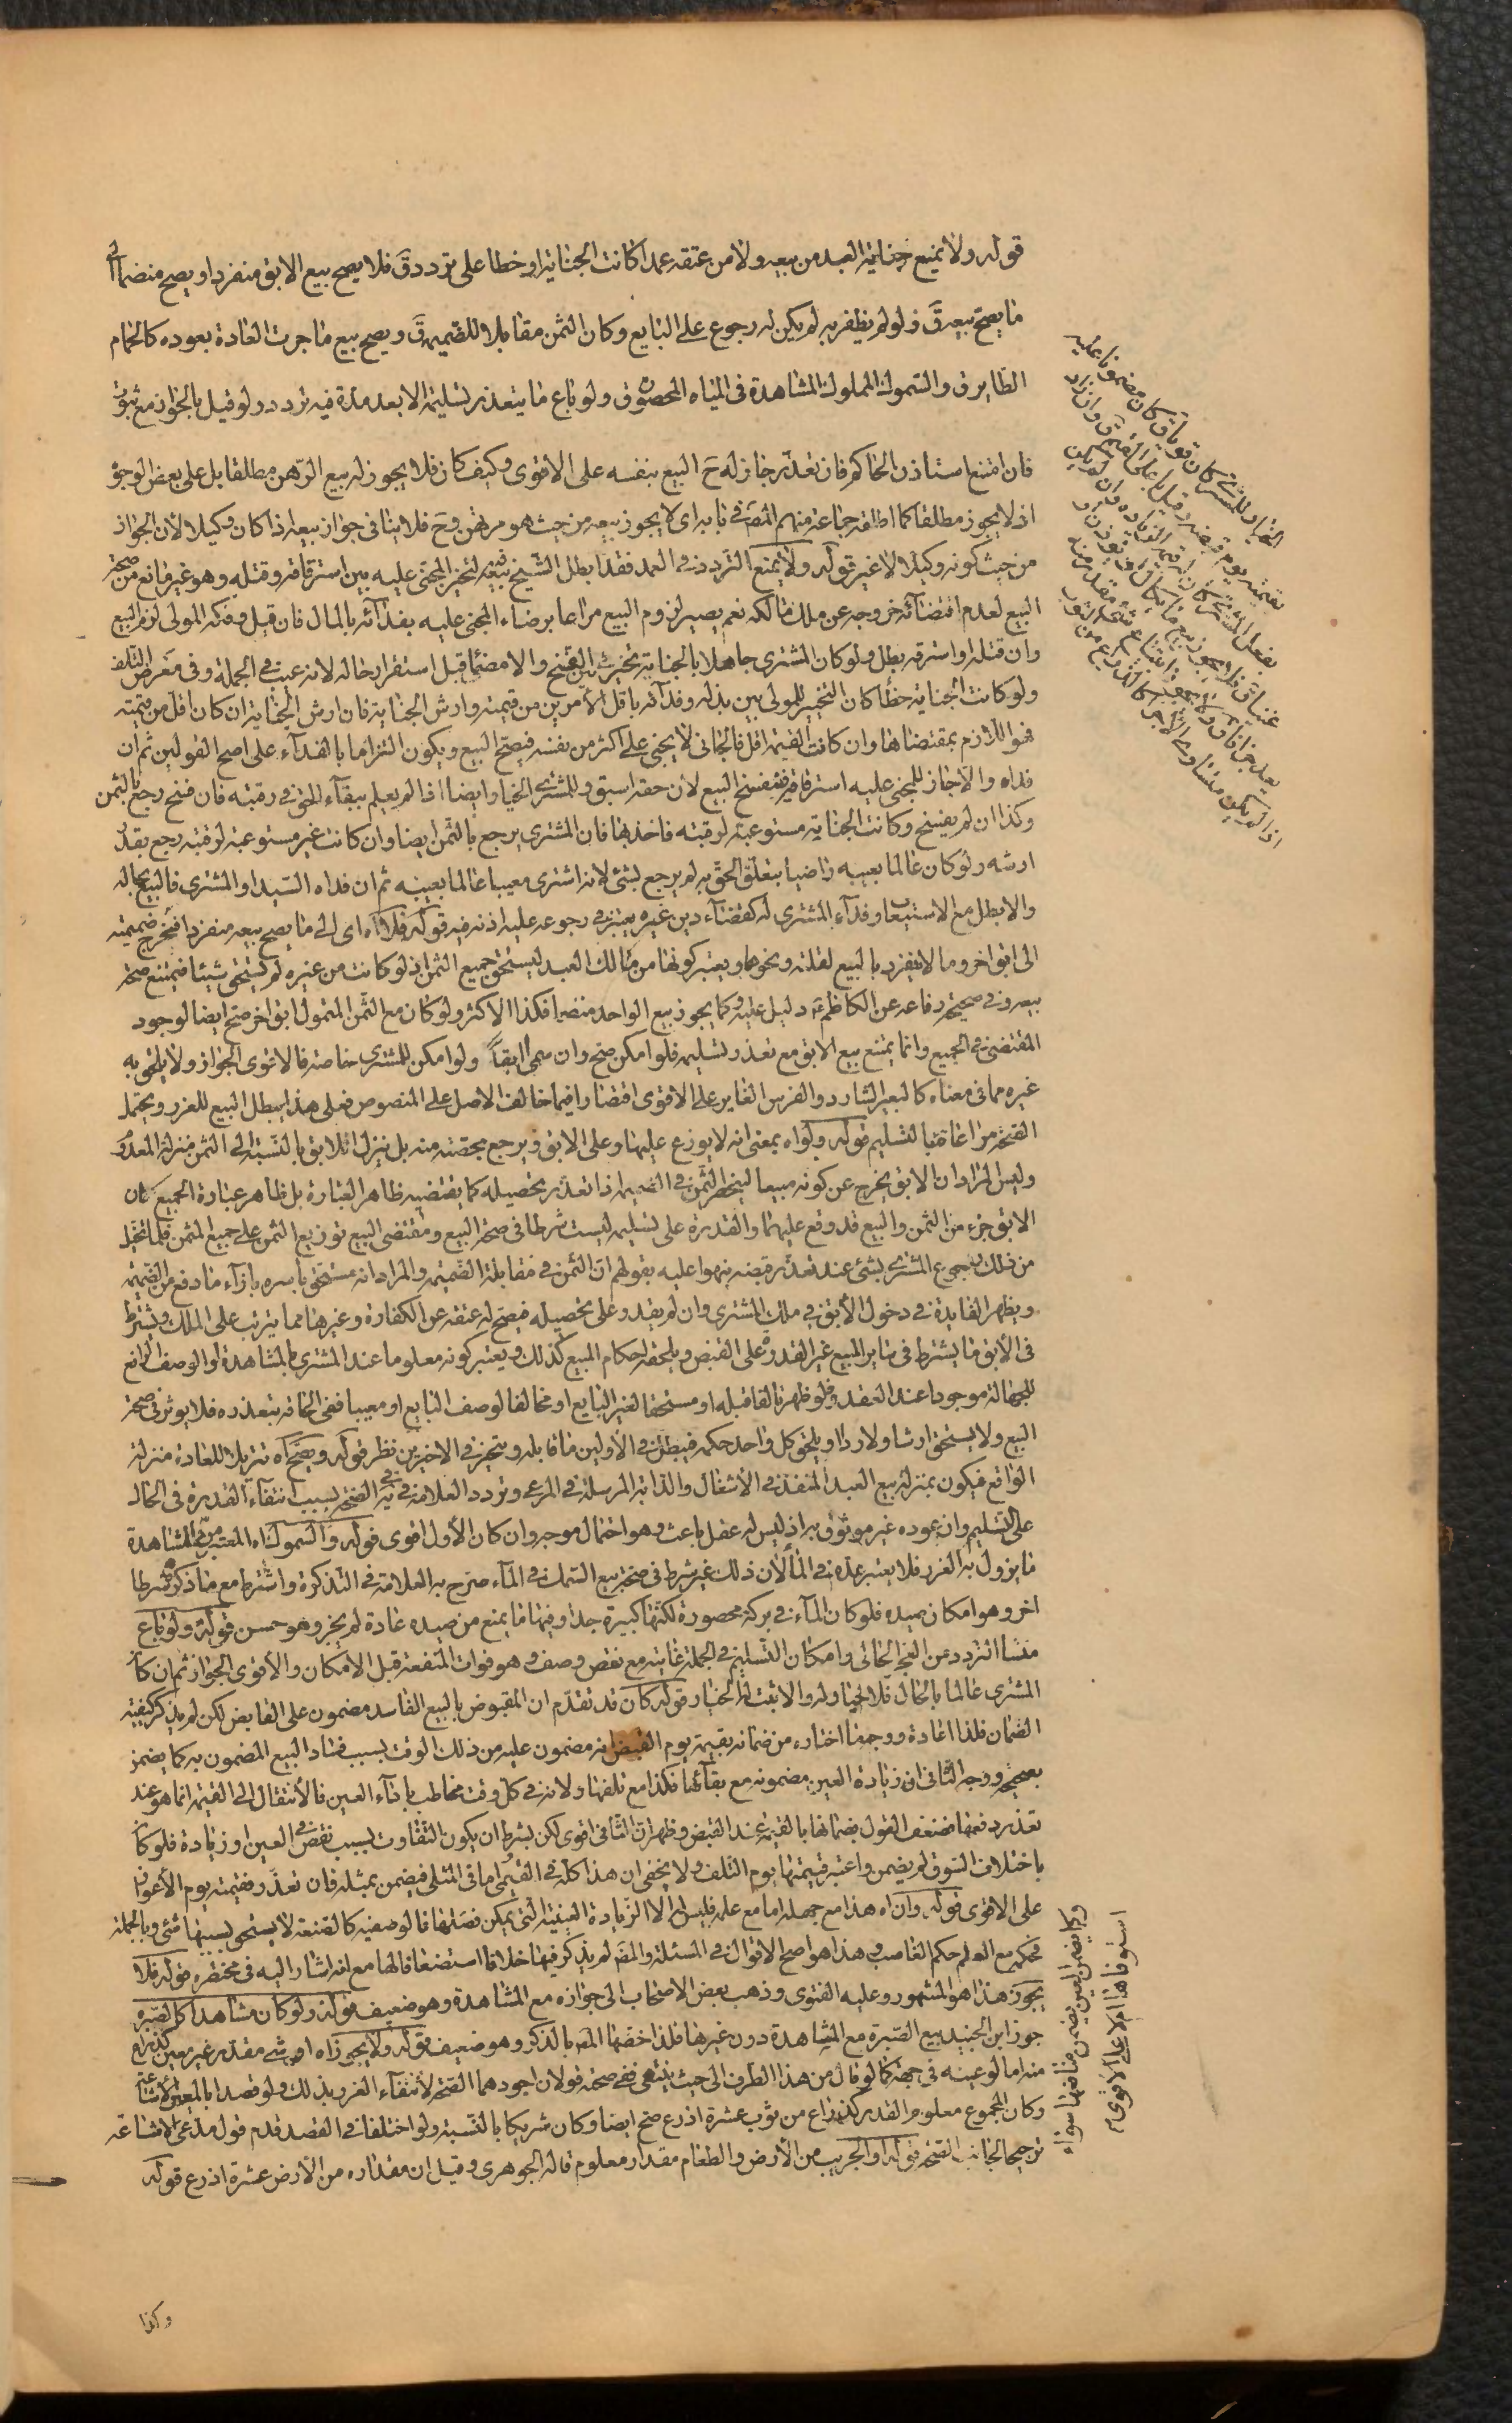 قوله ولا يمنع جناية العبد من بيعه ولا من عتقه عمدا كانت الجناية او خطا على تردد ق فلا يصح بيع الابق منفردا ويصح منضما الى
ما يصح بيعه ق فلو لم يظفر به لم يكن له رجوع على البايع وكان الثمن مقابلا للضميمة ق ويصح بيع ما جرت العادة بعوده كالحمام
الطاير ق والسموك المملوك المشاهدة في المياه المحصورة ق ولو باع ما يتعذر تسليمه الا بعد مدة فيه تردد ولو قيل بالجواز مع ثبوت
فان امتنع استاذن الحاكم فان تعذر جاز له ح البيع بنفسه على الاقوى وكيف كان فلا يجوز له بيع الرهن مطلقا بل على بعض الوجوه
اذ لا يجوز مطلقا كما اطلقه جماعة منهم المص في بابه اى لا يجوز بيعه من حيث هو مرتهن وح فلا ينافي جواز بيعه اذا كان وكيلا لان الجواز
من حيث كونه وكيلا لا غير قوله ولا يمنع التردد في العمد فقد ابطل الشيخ بيعه لتخير المجنى عليه بين استرقاقه وقتله وهو غير مانع من صحة
البيع لعدم اقتضائه خروجه عن ملك مالكه نعم يصير لزوم البيع مراعا برضاء المجنى عليه بفدائه بالمال فان قبل وفكه المولى لزم البيع
وان قتله او استرقه بطل ولو كان المشترى جاهلا بالجناية تخير بين الفسخ والامضاء قبل استقرار حاله لانه عيب في الجملة وفى معرض التلف
ولو كانت الجناية خطأ كان التخيير للمولى بين بذله وفدائه باقل الامرين من قيمته وارش الجناية فان ارش الجناية ان كان اقل من قيمته
فهو اللازم بمقتضاها وان كانت القيمة اقل فالجانى لا يجنى على اكثر من نفسه فيصح البيع ويكون التزاما بالفداء على اصح القولين ثم ان
فداه والا جاز للمجنى عليه استرقاقه فينفسخ البيع لان حقه اسبق وللمشترى الخيار ايضا اذا لم يعلم ببقاء الحق في رقبته فان فسخ رجع بالثمن
وكذا ان لم يفسخ وكانت الجناية مستوعبة لرقبته فاخذ بها فان المشترى يرجع بالثمن ايضا وان كانت غير مستوعبة لرقبته رجع بقدر
ارشه ولو كان عالما بعيبه راضيا بتعلق الحق به لم يرجع بشئ لانه اشترى معيبا عالما بعيبه ثم ان فداه السيد او المشترى فالبيع بحاله
والا بطل مع الاستيعاب وفداء المشترى له كقضاء دين غيره يعتبر في رجوعه عليه اذنه فيه قوله فلا اه اى الى ما يصح بيعه منفردا فخرج ضميمته
الى ابق اخر وما لا ينفرد بالبيع لقلته ونحوها ويعتبر كونها من مالك العبد ليستحق جميع الثمن اذ لو كانت من غيره لم يستحق شيئا فيمتنع صحة
بيعه وفي صحيحة رفاعه عن الكاظم ع دليل عليه وكما يجوز بيع الواحد منضما فكذا الاكثر ولو كان مع الثمن المتمول ابق اخر صح ايضا لوجود
المقتضى في الجميع وانما يمتنع بيع الابق مع تعذر تسليمه فلو امكن صح وان سمى ابقا ولو امكن للمشترى خاصة فالاقوى الجواز ولا يلحق به
غيره مما في معناه كالبعير الشارد والفرس الغاير على الاقوى اقتصارا فيما خالف الاصل على المنصوص فعلى هذا يبطل البيع للغرر ويحتمل
الصحة مراعاة بالتسليم قوله ولو اه بمعنى انه لا يوزع عليها وعلى الابق ويرجع بحصته منه بل ينزل الابق بالنسبة الى الثمن منزلة المعدوم
وليس المراد ان الابق يخرج عن كونه مبيعا لينحصر الثمن في الضميمة اذا تعذر تحصيله كما يقتضيه ظاهر العبارة بل ظاهر عبارة الجميع لان
الابق جزء من الثمن والبيع قد وقع عليهما والقدرة على تسليمه ليست شرطا في صحة البيع ومقتضى البيع توزيع الثمن على جميع المثمن فلما تخيل
من ذلك رجوع المشترى بشئ عند تعذر قبضه نبهوا عليه بقولهم ان الثمن في مقابلة الضميمة والمراد انه مستحق باسره بازاء ما دفع من الضميمة
ويظهر الفايدة في دخول الابق في ملك المشترى وان لم يقدر على تحصيله فيصح له عتقه عن الكفارة وغيرها مما يترتب على الملك ويشترط
في الابق ما يشترط في ساير المبيع غير القدرة على القبض ويلحقه احكام المبيع كذلك ويعتبر كونه معلوما عند المشترى بالمشاهدة او الوصف الرافع
للجهالة موجودا عند العقد ولو ظهر تالفا قبله او مستحقا لغير البايع او مخالفا لوصف البايع او معيبا ففى الحاقه بتعذره فلا يوثر في صحة
البيع ولا يستحق ارشا ولا ردا او يلحق كل واحد حكمه فيبطل في الاولين ما قابله ويتخير في الاخيرين نظر قوله ويصح اه تنزيلا للعادة منزلة
الواقع فيكون بمنزلة بيع العبد المنفذ في الاشغال والدابة المرسلة في المرعى وتردد العلامة في ية في الصحة بسبب انتفاء القدرة في الحال
على التسليم وان عوده غير موثوق به اذ ليس له عقل باعث وهو احتمال موجه وان كان الاول اقوى قوله والسموك اه المعتبر من المشاهدة
ما يزول به الغرر فلا يعتبر عده في الماء لان ذلك غير شرط في صحة بيع السمك في الماء صرح به العلامة في التذكرة واشترط مع ما ذكر شرطا
اخر وهو امكان صيده فلو كان الماء في بركة محصورة لكنها كبيرة جدا وفيها ما يمنع من صيده عادة لم يجز وهو حسن قوله ولو باع
منشأ التردد عن العجز الحالى وامكان التسليم في الجملة غايته مع نقص وصف وهو فوات المنفعة قبل الامكان والاقوى الجواز ثم ان كان
المشترى عالما بالحال فلا خيار له والا ثبت له الخيار قوله كان قد تقدم ان المقبوض بالبيع الفاسد مضمون على القابض لكن لم يذكر كيفية
الضمان فلذا اعاده ووجه ما اختاره من ضمانه بقيمته يوم القبض انه مضمون عليه من ذلك الوقت بسبب فساد البيع المضمون به كما يضمن
بصحيحه ووجه الثانى ان زيادة العين مضمونه مع بقائها فكذا مع تلفها ولانه في كل وقت مخاطب باداء العين فالانتقال الى القيمة انما هو عند
تعذر دفعها فضعف القول بضمانها بالقيمة عند القبض وظهر ان الثانى اقوى لكن بشرط ان يكون التفاوت بسبب نقص في العين او زيادة فلو كان
باختلاف السوق لم يضمن واعتبر قيمتها يوم التلف ولا يخفى ان هذا كله في القيمى اما في المثلى فيضمن بمثله فان تعذر فقيمته يوم الاعواز
على الاقوى قوله وان اه هذا مع جهله اما مع علمه فليس له الا الزيادة العينية التى يمكن فصلها فالوصفيه كالصنعة لا يستحق بسببها شئ وبالجملة
فحكمه مع العلم حكم الغاصب وهذا هو اصح الاقوال في المسئلة والمص لم يذكر فيها خلافا استضعافا لها مع انه اشار اليه في مختصره قوله فلا
يجوز هذا هو المشهور وعليه الفتوى وذهب بعض الاصحاب الى جوازه مع المشاهدة وهو ضعيف قوله ولو كان مشاهدا كالصبرة
جوز ابن الجنيد بيع الصبرة مع المشاهدة دون غيرها فلذا خصها المص بالذكر وهو ضعيف قوله ولا يجوز اه اى شئ مقدر غير معين كذراع
منه اما لو عينه في جهة كما لو قال من هذا الطرف الى حيث ينتهى ففى صحته قولان اجودهما الصحة لانتفاء الغرر بذلك ولو قصدا بالمعين الاشاعة
وكان المجموع معلوم القدر كذراع من ثوب عشرة اذرع صح ايضا وكان شريكا بالنسبة ولو اختلفا في القصد قدم قول مدعى الاشاعة
ترجيحا لجانب الصحة قوله او الجريب من الارض والطعام مقدار معلوم قاله الجوهرى وقيل ان مقداره من الارض عشرة اذرع قوله
الخيار للمشترى كان قويا ق كان مضمونا عليه
بقيمته يوم قبضه وقيل باعلى القيم ق وان زاد
بفعل المشترى كان له قيمة الزيادة وان لم يكن
عينا ق فلا يجوز بيع ما يكال او يوزن او
يعد جزافا ق ولا يجوز ابتياع شئ مقدر منه
اذا لم يكن متساوى الاجزاء كالذراع من
وكما يضمن العين يضمن منافعها سواء
استوفاها ام لا على الاقوى م
وكذا